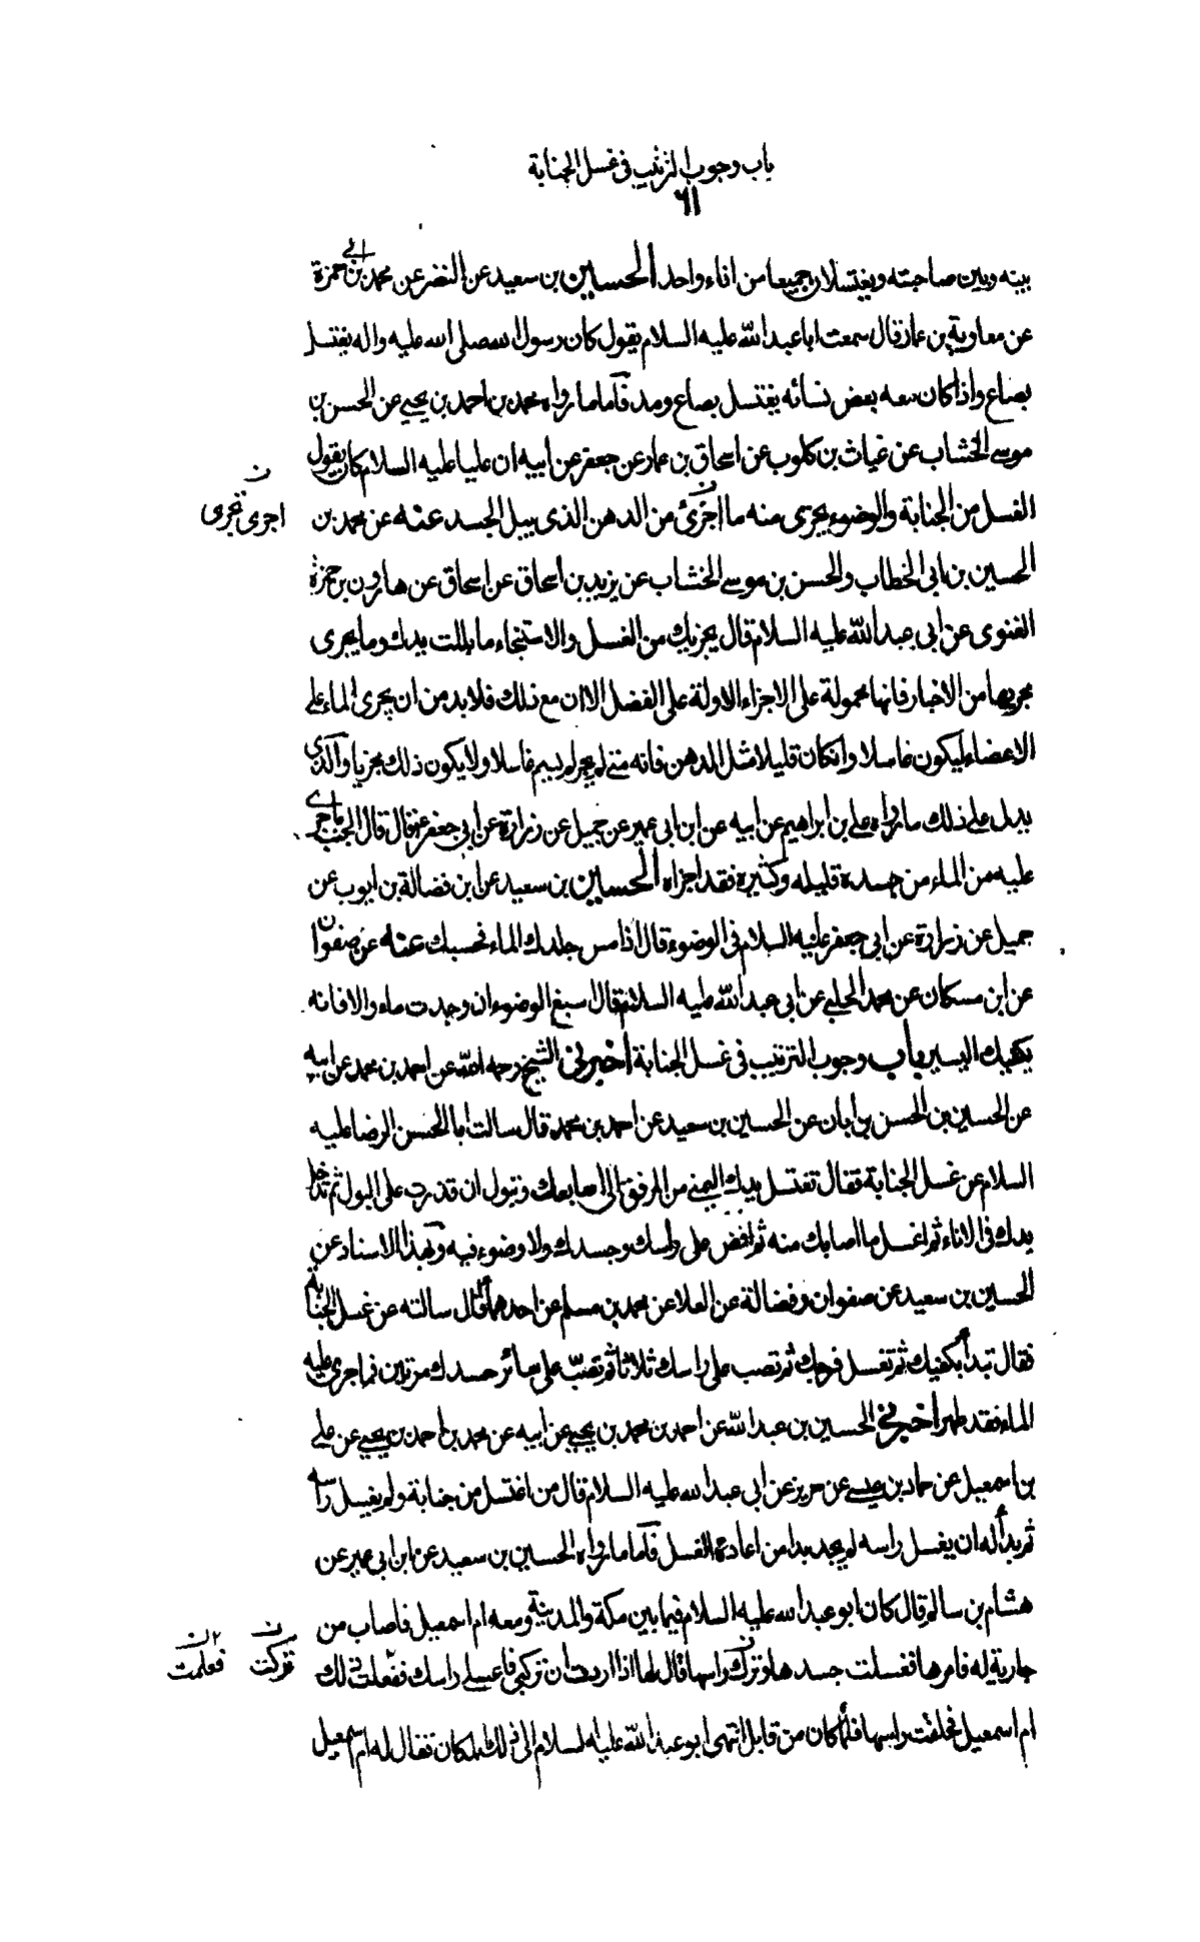 باب وجوب الترتيب في غسل الجنابة
٦١
بينه وبين صاحبته ويغتسلان جميعا من اناء واحد الحسين بن سعيد عن النضر عن محمد بن ابي حمزة
عن معاوية بن عمار قال سمعت ابا عبد الله عليه السلام يقول كان رسول الله صلى الله عليه واله يغتسل
بصاع واذا كان معه بعض نسائه يغتسل بصاع ومد فاما ما رواه محمد بن احمد بن يحيى عن الحسن بن
موسى الخشاب عن غياث بن كلوب عن اسحاق بن عمار عن جعفر عن ابيه ان عليا عليه السلام كان يقول
الغسل من الجنابة والوضوء يجزى منه ما اجزئ من الدهن الذى يبل الجسد عنه عن محمد بن
ن
اجرى تجرى
الحسين بن ابى الخطاب والحسن بن موسى الخشاب عن يزيد بن اسحاق عن اسحاق عن هارون بن حمزة
الغنوى عن ابى عبد الله عليه السلام قال يجزيك من الغسل والاستنجاء ما بللت يدك وما يجرى
مجريها من الاخبار فانها محمولة على الاجزاء الاولة على الفضل الا ان مع ذلك فلا بد من ان يجرى الماء على
الاعضاء ليكون غاسلا وانكان قليلا مثل الدهن فانه متى لم يجر لم يسم غاسلا ولا يكون ذلك مجزيا والذى
يدل على ذلك ما رواه على بن ابراهيم عن ابيه عن ابن ابى عمير عن جميل عن زرارة عن ابى جعفر ع قال قال الجنب ما جرى
عليه من الماء من جسده قليله وكثيره فقد اجزاه الحسين بن سعيد عن ابن فضالة بن ايوب عن
جميل عن زرارة عن ابى جعفر عليه السلام فى الوضوء قال اذا مس جلدك الماء فحسبك عنه عن صفوان
عن ابن مسكان عن محمد الحلبى عن ابى عبد الله عليه السلام قال اسبغ الوضوء ان وجدت ماء والا فانه
يكفيك اليسير باب وجوب الترتيب فى غسل الجنابة اخبرنى الشيخ رحمه الله عن احمد بن محمد عن ابيه
عن الحسين بن الحسن بن ابان عن الحسين بن سعيد عن احمد بن محمد قال سالت ابا الحسن الرضا عليه
السلام عن غسل الجنابة فقال تغتسل يدك اليمنى من المرفق الى اصابعك وتبول ان قدرت على البول ثم تدخل
يدك فى الاناء ثم اغسل ما اصابك منه ثم افض على راسك وجسدك ولا وضوء فيه وبهذا الاسناد عن
الحسين بن سعيد عن صفوان وفضالة عن العلا عن محمد بن مسلم عن احدهما ع قال سالته عن غسل الجنابة
فقال تبدأ بكفيك ثم تغسل فرجك ثم تصب على راسك ثلاثا ثم تصب على سائر جسدك مرتين فما جرى عليه
الماء فقد طهر اخبرنى الحسين بن عبد الله عن احمد بن محمد بن يحيى عن ابيه عن محمد بن احمد بن يحيى عن على
بن اسمعيل عن حماد بن عيسى عن حريز عن ابى عبد الله عليه السلام قال من اغتسل من جنابة ولم يغسل راسه
ثم بدأ له ان يغسل راسه لم يجد بدا من اعادة الغسل فاما ما رواه الحسين بن سعيد عن ابن ابى عمير عن
هشام بن سالم قال كان ابو عبد الله عليه السلام فيما بين مكة والمدينة ومعه ام اسمعيل فاصاب من
جارية له فامرها فغسلت جسدها وتركت راسها قال لها اذا اردت ان تركبى فاغسلى راسك ففعلت ذلك
ن تتركت
٢ن فعلمت
ام اسمعيل فحلقت راسها فلما كان من قابل انتهى ابو عبد الله عليه السلام الى ذلك المكان فقال له ام اسمعيل